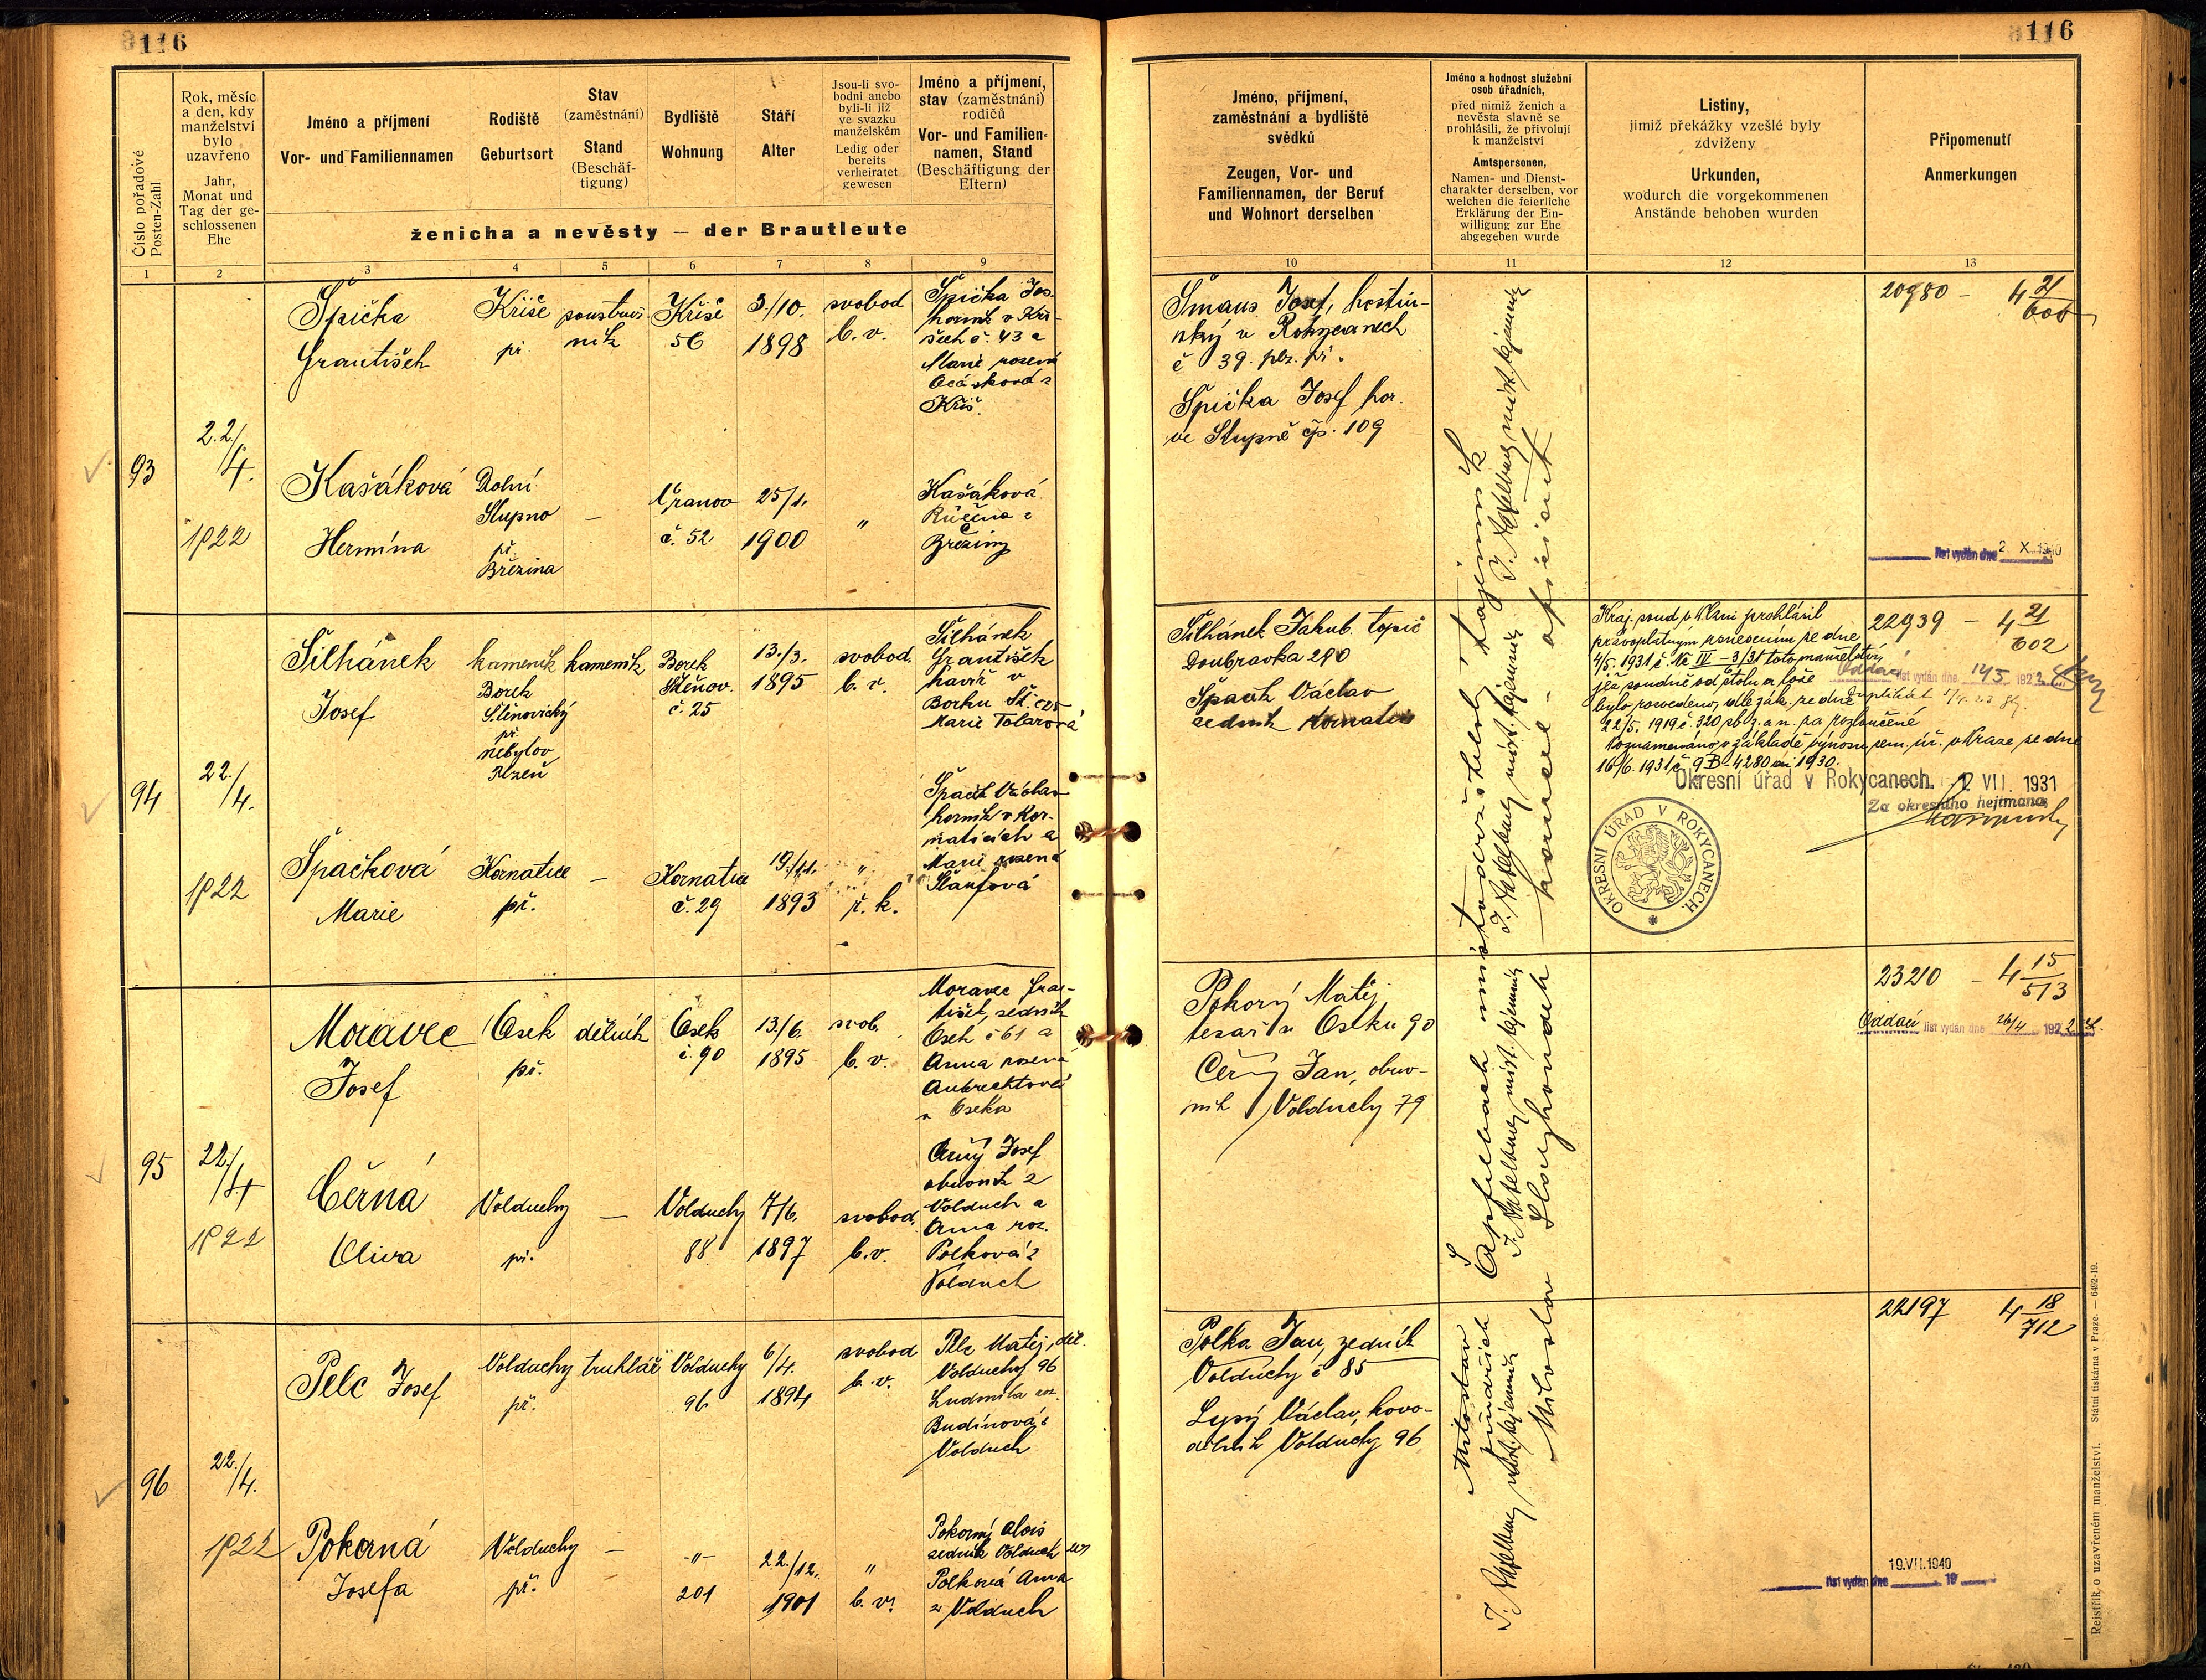 116
Číslo pořadové
Posten-Zahl
Rok, měsíc
a den, kdy
manželství
bylo
uzavřeno
Jahr,
Monat und
Tag der ge-
schlossenen
Ehe
Jméno a příjmení
Vor- und Familiennamen
Rodiště
Geburtsort
Stav
(zaměstnání)
Stand
(Beschäf-
tigung)
Bydliště
Wohnung
Stáří
Alter
Jsou-li svo-
bodni anebo
byli-li již
ve svazku
manželském
Ledig oder
bereits
verheiratet
gewesen
Jméno a příjmení,
stav (zaměstnání)
rodičů
Vor- und Familien-
namen, Stand
(Beschäftigung der
Eltern)
ženicha a nevěsty — der Brautleute
1 2 3 4 5 6 7 8 9
93
22./
4.
1922
Špička
František
Kříše
př.
soustruž-
ník
Kříše
56
3./10.
1898
svobod
b. v.
Špička Jos.
horník v Kří-
ších č. 43 a
Marie rozená
z
Kříš.
Kašáková
Hermína
Dolní
Stupno
př.
Březina
—
Vranov
č. 52
25/1.
1900
"
Kašáková
Růžena z
Březiny
94
22./
4.
1922
Šilhánek
Josef
kameník
Borek
Štěnovický
př.
Nebylov
Plzeň
kameník
Borek
Štěnov.
č. 25
13./3.
1895
svobod.
b. v.
Šilhánek
František
havíř v
Borku Št. č 25
Marie Tolarová
Špačková
Marie
Kornatice
př.
—
Kornatice
č. 29
19./11.
1893
"
ř. k.
Špaček Václav
horník v Kor-
naticích a
Marie rozená
95
22./
4
1922
Moravec
Josef
Osek
př.
dělník
Osek
č. 90
13./6.
1895
svob.
b. v.
Moravec Fran-
tišek, zedník
Osek č 61 a
Anna rozená
Aubrechtová
z Oseka
Černá
Oliva
Volduchy
př.
—
Volduchy
88
7/6.
1897
svobod.
b. v.
Černý Josef
obuvník z
Volduch a
Anna roz.
Polková z
Volduch
96
22./
4.
1922
Pelc Josef
Volduchy
př.
truhlář
Volduchy
96
6/4.
1894
svobod
b. v.
Pelc Matěj, děl.
Volduchy 96
Ludmila roz.
Budínová z
Volduch
Pokorná
Josefa
Volduchy
př.
—
-"-
201
22./12.
1901
"
b. v.
Pokorný Alois
zedník Volduch 201
Polková Anna
z Volduch
116
Jméno, příjmení,
zaměstnání a bydliště
svědků
Zeugen, Vor- und
Familiennamen, der Beruf
und Wohnort derselben
Jméno a hodnost služební
osob úřadních,
před nimiž ženich a
nevěsta slavně se
prohlásili, že přivolují
k manželství
Amtspersonen,
Namen- und Dienst-
charakter derselben, vor
welchen die feierliche
Erklärung der Ein-
willigung zur Ehe
abgegeben wurde
Listiny,
jimiž překážky vzešlé byly
zdviženy
Urkunden,
wodurch die vorgekommenen
Anstände behoben wurden
Připomenutí
Anmerkungen
10 11 12 13
Šmaus Josef, hostin-
ský v Rokycanech
č 39. plz. př.
Špička Josef hor.
ve Stupně čp. 109
20980 — 4 21/606
list vydán dne 2 X. 1940
Šilhánek Jakub. topič
Doubravka 290
Špaček Václav
zedník Kornatice
Kraj. soud v Plzni prohlásil
právoplatným usnesením ze dne
4/5. 1931 č. Nc IV — 3/31 toto manželství,
jež soudně od stolu a lože
bylo rozvedeno, dle zák. ze dne
22/5. 1919 č. 320 sb. z. a n. za rozloučené
Poznamenáno v základě výnosu zem. úř. v Praze ze dne
16/6. 1931 č 9 B-4280 ai 1930.
Okresní úřad v Rokycanech. VII. 1931
Za okresního hejtmana
OKRESNÍ ÚŘAD V ROKYCANECH.
22939 — 4 21/602
Oddací list vydán dne 14/5 1922
duplikát
Pokorný Matěj
tesař v Oseku 90
Černý Jan, obuv-
ník Volduchy 79
23210 — 4 15/513
Oddací list vydán dne 26/4 1922
Polka Jan, zedník
Volduchy č 85
Lysý Václav, kovo-
dělník Volduchy 96
22197 4 18/712
list vydán dne 19.VII.1940 19
Miloslav Slouha
Rejstřík o uzavřeném manželství. Státní tiskárna v Praze. — 6492-19.